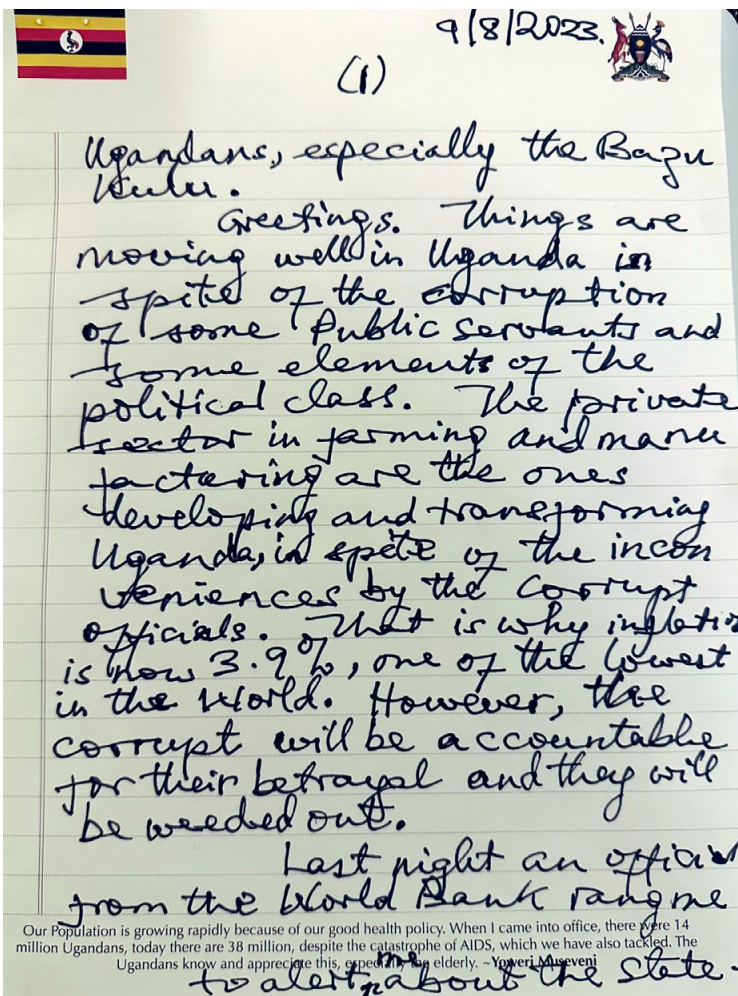 9/8/2023.
(1)
Ugandans, especially the Bazu
kulu.
Greetings. Things are
moving well in Uganda in
spite of the corruption
of some Public servants and
some elements of the
political class. The private
sector in farming and manu
factering are the ones
developing and transforming
Uganda, in spite of the incon
veniences by the corrupt
officials. That is why inflatio
is now 3.9%, one of the lowest
in the World. However, the
corrupt will be accountable
for their betrayal and they will
be weeded out.
Last night an official
from the World Bank rang me
Our Population is growing rapidly because of our good health policy. When I came into office, there were 14
million Ugandans, today there are 38 million, despite the catastrophe of AIDS, which we have also tackled. The
Ugandans know and appreciate this, especially the elderly. ~Yoweri Museveni
to alert me about the state-